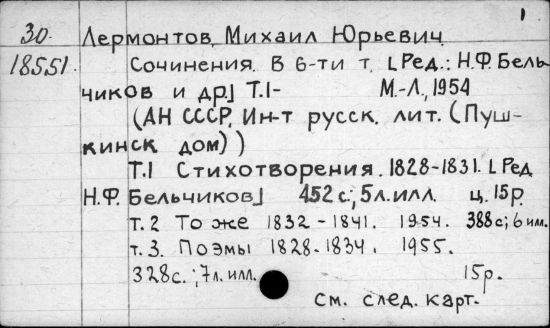 1
30. Лермонтов, Михаил Юрьевич.
18551. Сочинения. В 6-ти т. [Ред.: Н.Ф. Бель-
чиков и др.] Т.1- М.-Л., 1954
(АН СССР, Ин-т русск. лит. (Пуш-
кинск дом))
Т.1 Стихотворения. 1828-1831. [Ред
Н.Ф. Бельчиков] 452 с.; 5 л. илл. ц. 15 р.
т. 2 То же 1832-1841. 1954. 388 с; 6 илл.
т. 3. Поэмы 1828-1834. 1955.
328 с. ; 7 л. илл. 15 р.
см. след. карт.